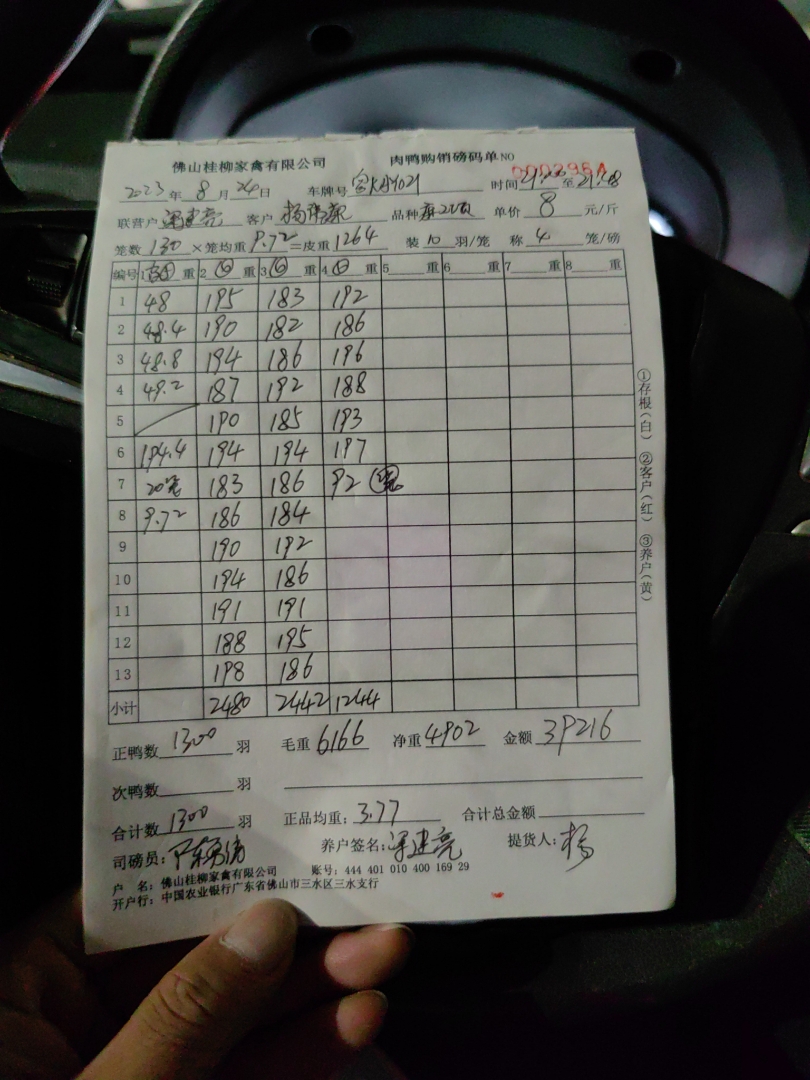 佛山桂柳家禽有限公司 肉鸭购销磅码单 NO
2023年8月24日 车牌号 时间 至21:08
联营户 梁建亮 客户 杨 品种 单价 8 元/斤
笼数 130 ×笼均重 9.72 =皮重 1264 装 10 羽/笼 称 4 笼/磅
编号 1 重 2 重 3 重 4 重 5 重 6 重 7 重 8 重
1 48 195 183 192
2 48.4 190 182 186
3 48.8 194 186 196
4 49.2 187 192 188
5 190 185 193
6 194.4 194 194 197
7 20笼 183 186 92
8 9.72 186 184
9 190 192
10 194 186
11 191 191
12 188 195
13 198 186
小计 2480 2442 1244
正鸭数 1300 羽 毛重 6166 净重 4902 金额 39216
次鸭数 羽
合计数 1300 羽 正品均重: 3.77 合计总金额
司磅员: 养户签名: 梁建亮 提货人: 杨
户 名: 佛山桂柳家禽有限公司 账号: 444 401 010 400 169 29
开户行: 中国农业银行广东省佛山市三水区三水支行
①存根(白) ②客户(红) ③养户(黄)